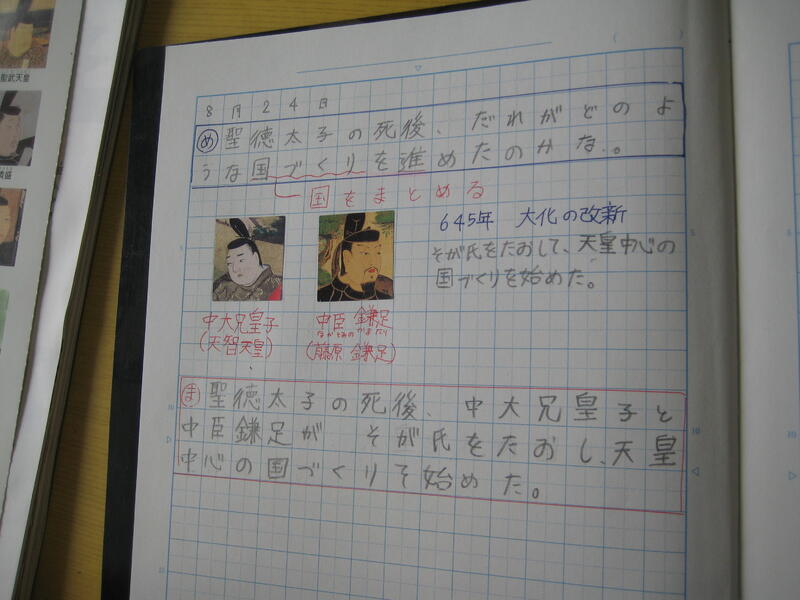 8月24日
め 聖徳太子の死後、だれがどのよ
うな国づくりを進めたのかな。
国をまとめる
645年 大化の改新
そが氏をたおして、天皇中心の
国づくりを始めた。
中大兄皇子
(天智天皇)
中臣 鎌足
なかとみの かまたり
(藤原 鎌足)
ま 聖徳太子の死後、中大兄皇子と
中臣鎌足が そが氏をたおし、天皇
中心の国づくりを始めた。
聖武天皇